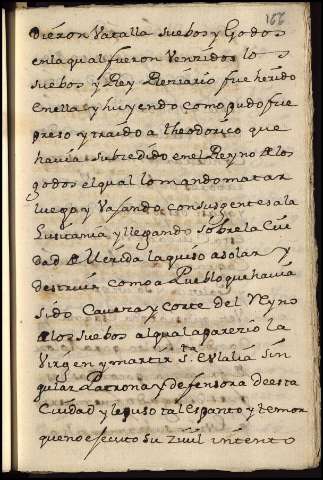 166
dieron Vatalla suebos y Godos
en la qual fueron Venzidos lo
suebos y Rey Reziario fue herido
en ella y huyendo como pudo fue
preso y traido a theodorico que
havia subzedido en el Reyno de los
godos el qual lo mando matar
luego y Vajando con su gente a la
Lusitania y llegando sobre la Ciu
dad de Merida la quiso asolar y
destruir como a Pueblo que havia
sido Caveza y Corte del Reyno
de los suebos al qual aparezio la
Virgen y martir sta. Eulalia sin
gular Patrona y defensora de esta
Ciudad y le puso tal espanto y temor
que no ejecuto su Zivil intento